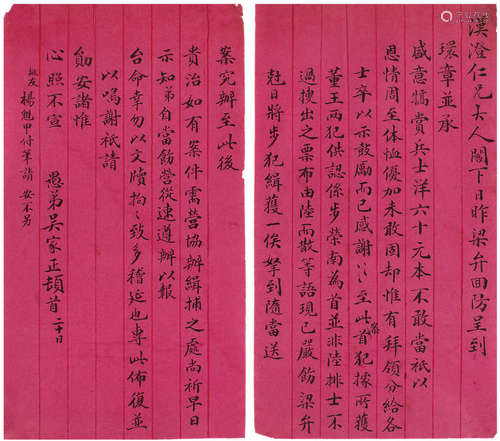 漢澄仁兄大人閣下日昨梁弁回防呈到
環章並承
盛意犒賞兵士洋六十元本不敢當祇以
思情周至体恤優加未敢固却惟有拜領分給各
士卒以示鼓勵而已感謝〻至此首犯據所獲
董王兩犯供認係步榮南為首並非陸排士不
過搜出之票布由陸而散等語現已嚴飭梁弁
尅日將步犯緝獲一俟拏到隨當送
案究辦至此後
貴治如有案件需營協辦緝捕之處尚祈早日
示知弟自當飭營從速遵辦以報
台命幸勿以文牘拘〻致多稽延也專此佈復並
以鳴謝祇請
勛安諸惟
心照不宣
愚弟吳家正頓首 二十日
楊魁甲付筆請安不另